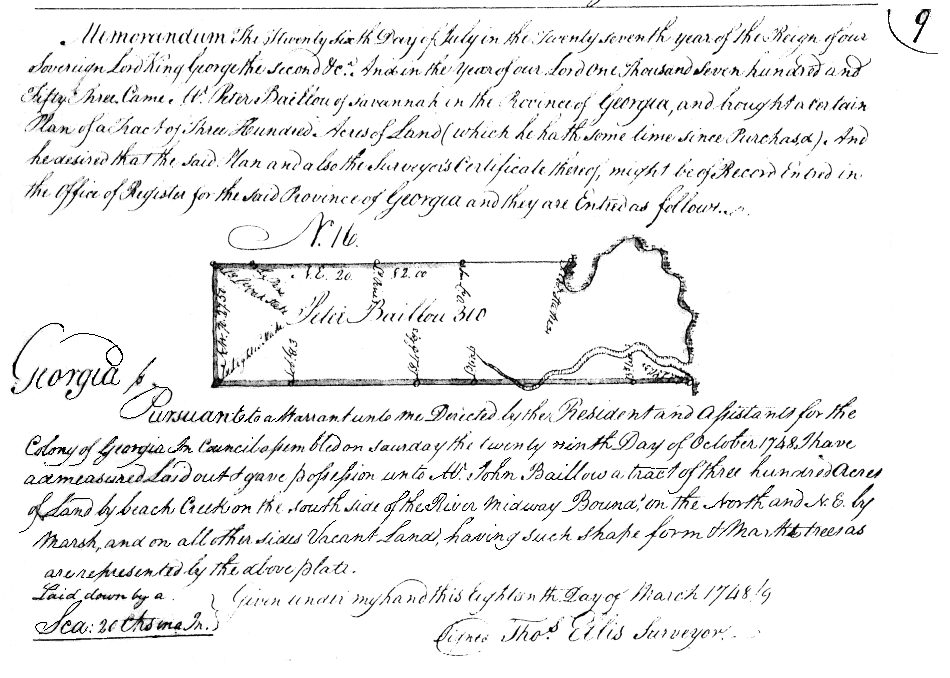 9
Memorandum The twenty sixth Day of July in the Twenty seventh year of the Reign of our
Sovereign Lord King George the second &c. And in the Year of our Lord One Thousand Seven hundred and
Fifty Three Came Mr. Peter Baillou of Savannah in the Province of Georgia, and brought a certain
Plan of a Tract of Three Hundred Acres of Land (which he hath some time since Purchas,d). And
he desired that the said Plan and also the Surveyor's Certificate thereof, might be of Record Entred in
the Office of Register for the said Province of Georgia and they are Entred as follows.
N. 16.
N.E. 20 82.00
Peter Baillou 310
Georgia ss.
Pursuant to a Warrant unto me Directed by the President and Assistants for the
Colony of Georgia In Council assembled on saurday the twenty ninth Day of October 1748 I have
admeasured Laid out & gave possession unto Mr. John Baillow a tract of three hundred Acres
of Land by beach Creek on the south side of the River Midway Bound, on the North and N.E. by
Marsh, and on all other sides Vacant Land, having such shape form & Marks trees as
are represented by the above plate.
Laid down by a
Sca: 20 Chs in a In.
Given under my hand this Eighteenth Day of March 1748/9
Signed Thos. Ellis Surveyor.